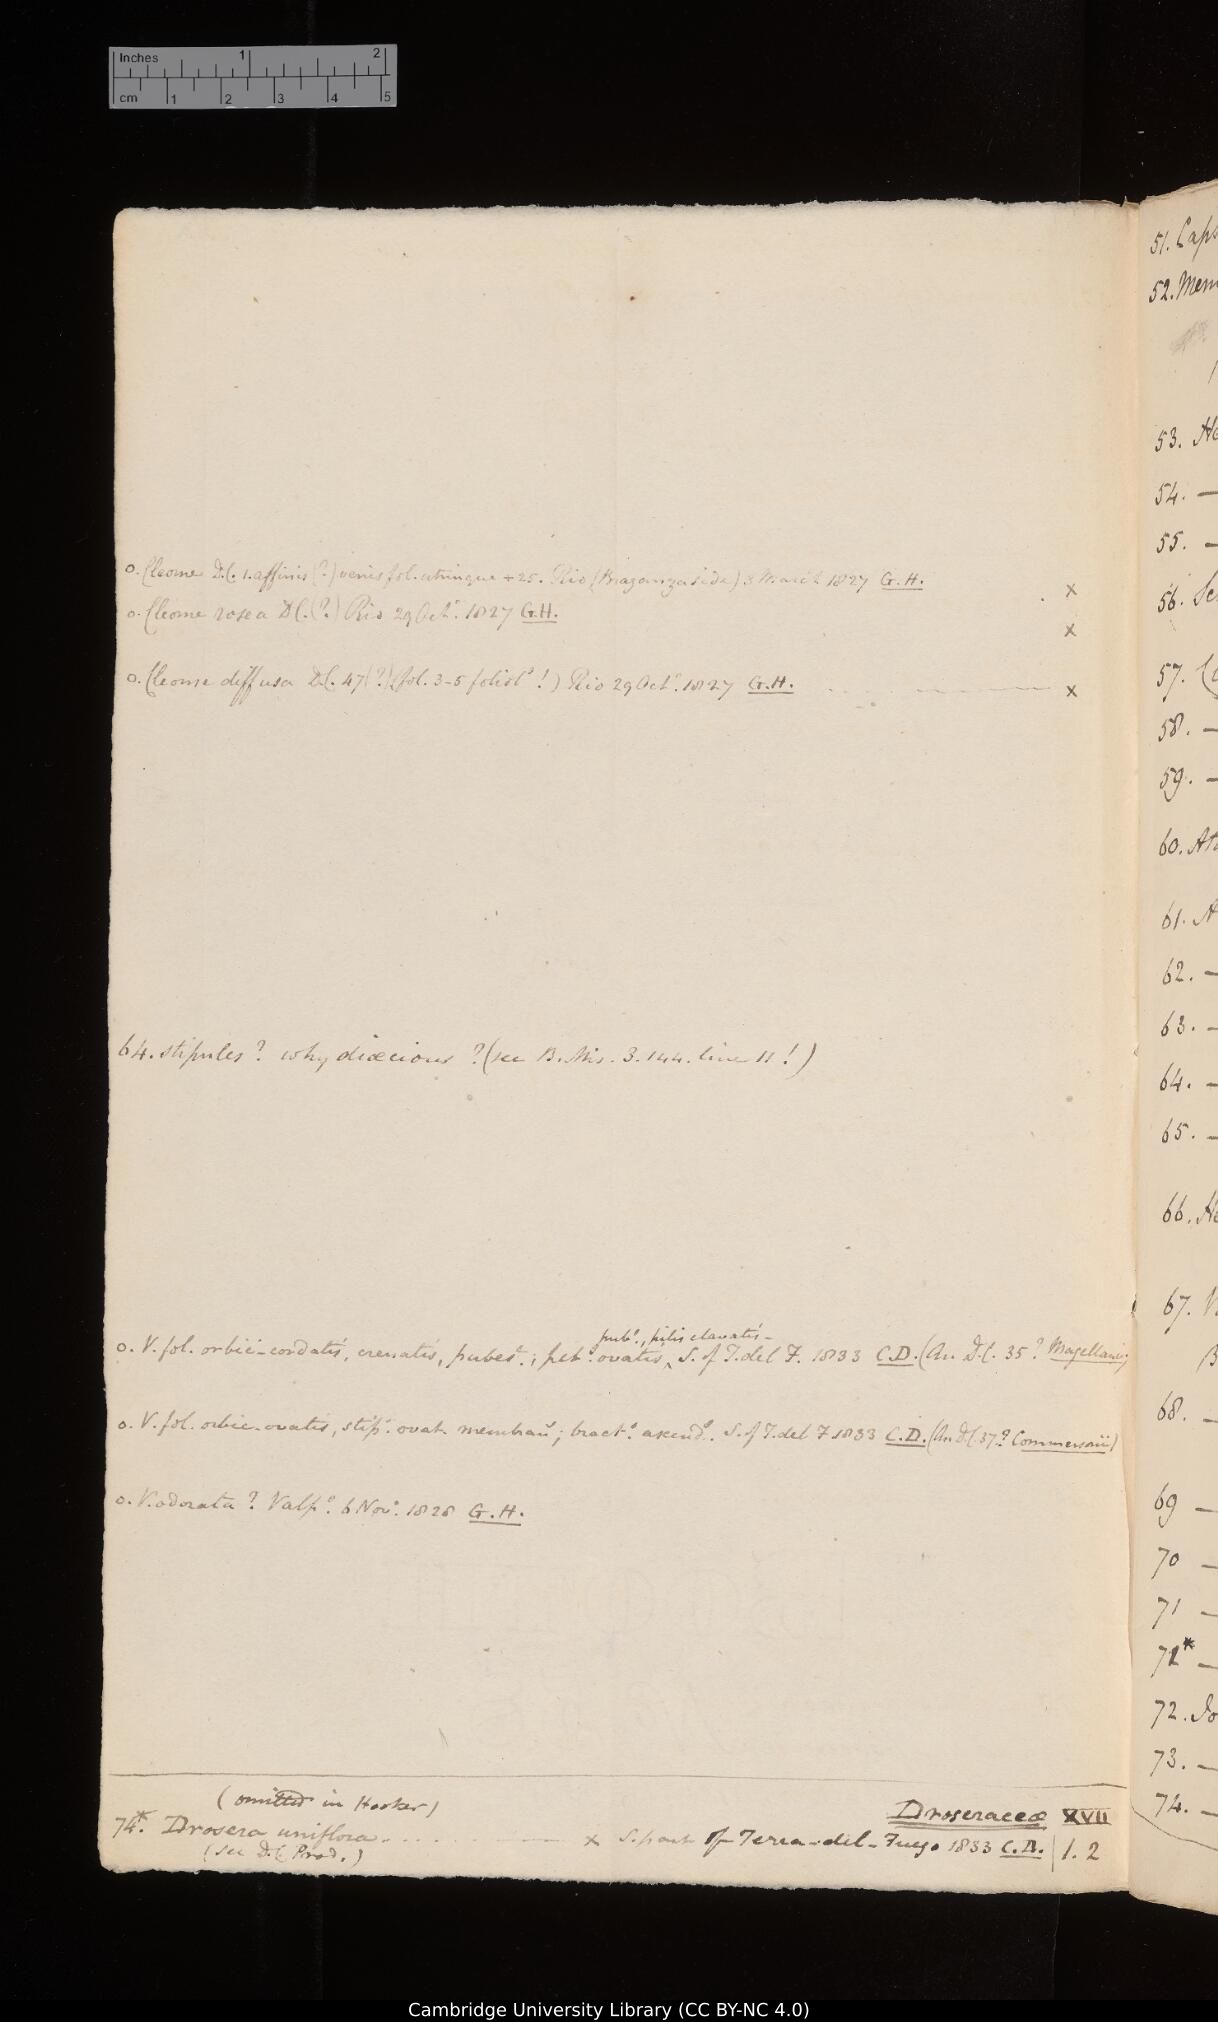 Inches 1 2
cm 1 2 3 4 5
o. Cleome D.C. 1. affinis (?) venis fol. utrinque + 25. Rio (Braganza side) 3 March 1827 G.H. x
o. Cleome rosea D.C. (?) Rio 29 Octr. 1827 G.H. x
o. Cleome diffusa D.C. 47 (?) (fol. 3-5 foliols !) Rio 29 Octr. 1827 G.H. x
64. stipules? why diœcious? (see B. Mis. 3. 144. line 11!)
pubs., pilis clavatis-
o. V. fol. orbic-cordatis, crenatis, pubesc.; pets. ovatis, ^ S. of T. del F. 1833 C.D. (An D.C. 35? Magellanic
o. V. fol. orbic-ovatis, stips. ovat. S. of T. del F 1833 C.D. (An D.C. 37? Commersonii)
o. V. odorata? Valpo. 6 Novr. 1828 G.H.
(omitted in Hooker)
Droseraceæ XVII
74*. Drosera uniflora x S. part of Terra-del-Fuego 1833 C.D. 1. 2
(see D.C. Prod.)
51. Caps
52. Mem
53. Ho
54. —
55. —
56.
57.
58. —
59. —
60. At
61. A
62. —
63. —
64. —
65. —
66. He
67. V
68. —
69 —
70 —
71 —
72* —
72. Jo
73. —
74. —
Cambridge University Library (CC BY-NC 4.0)